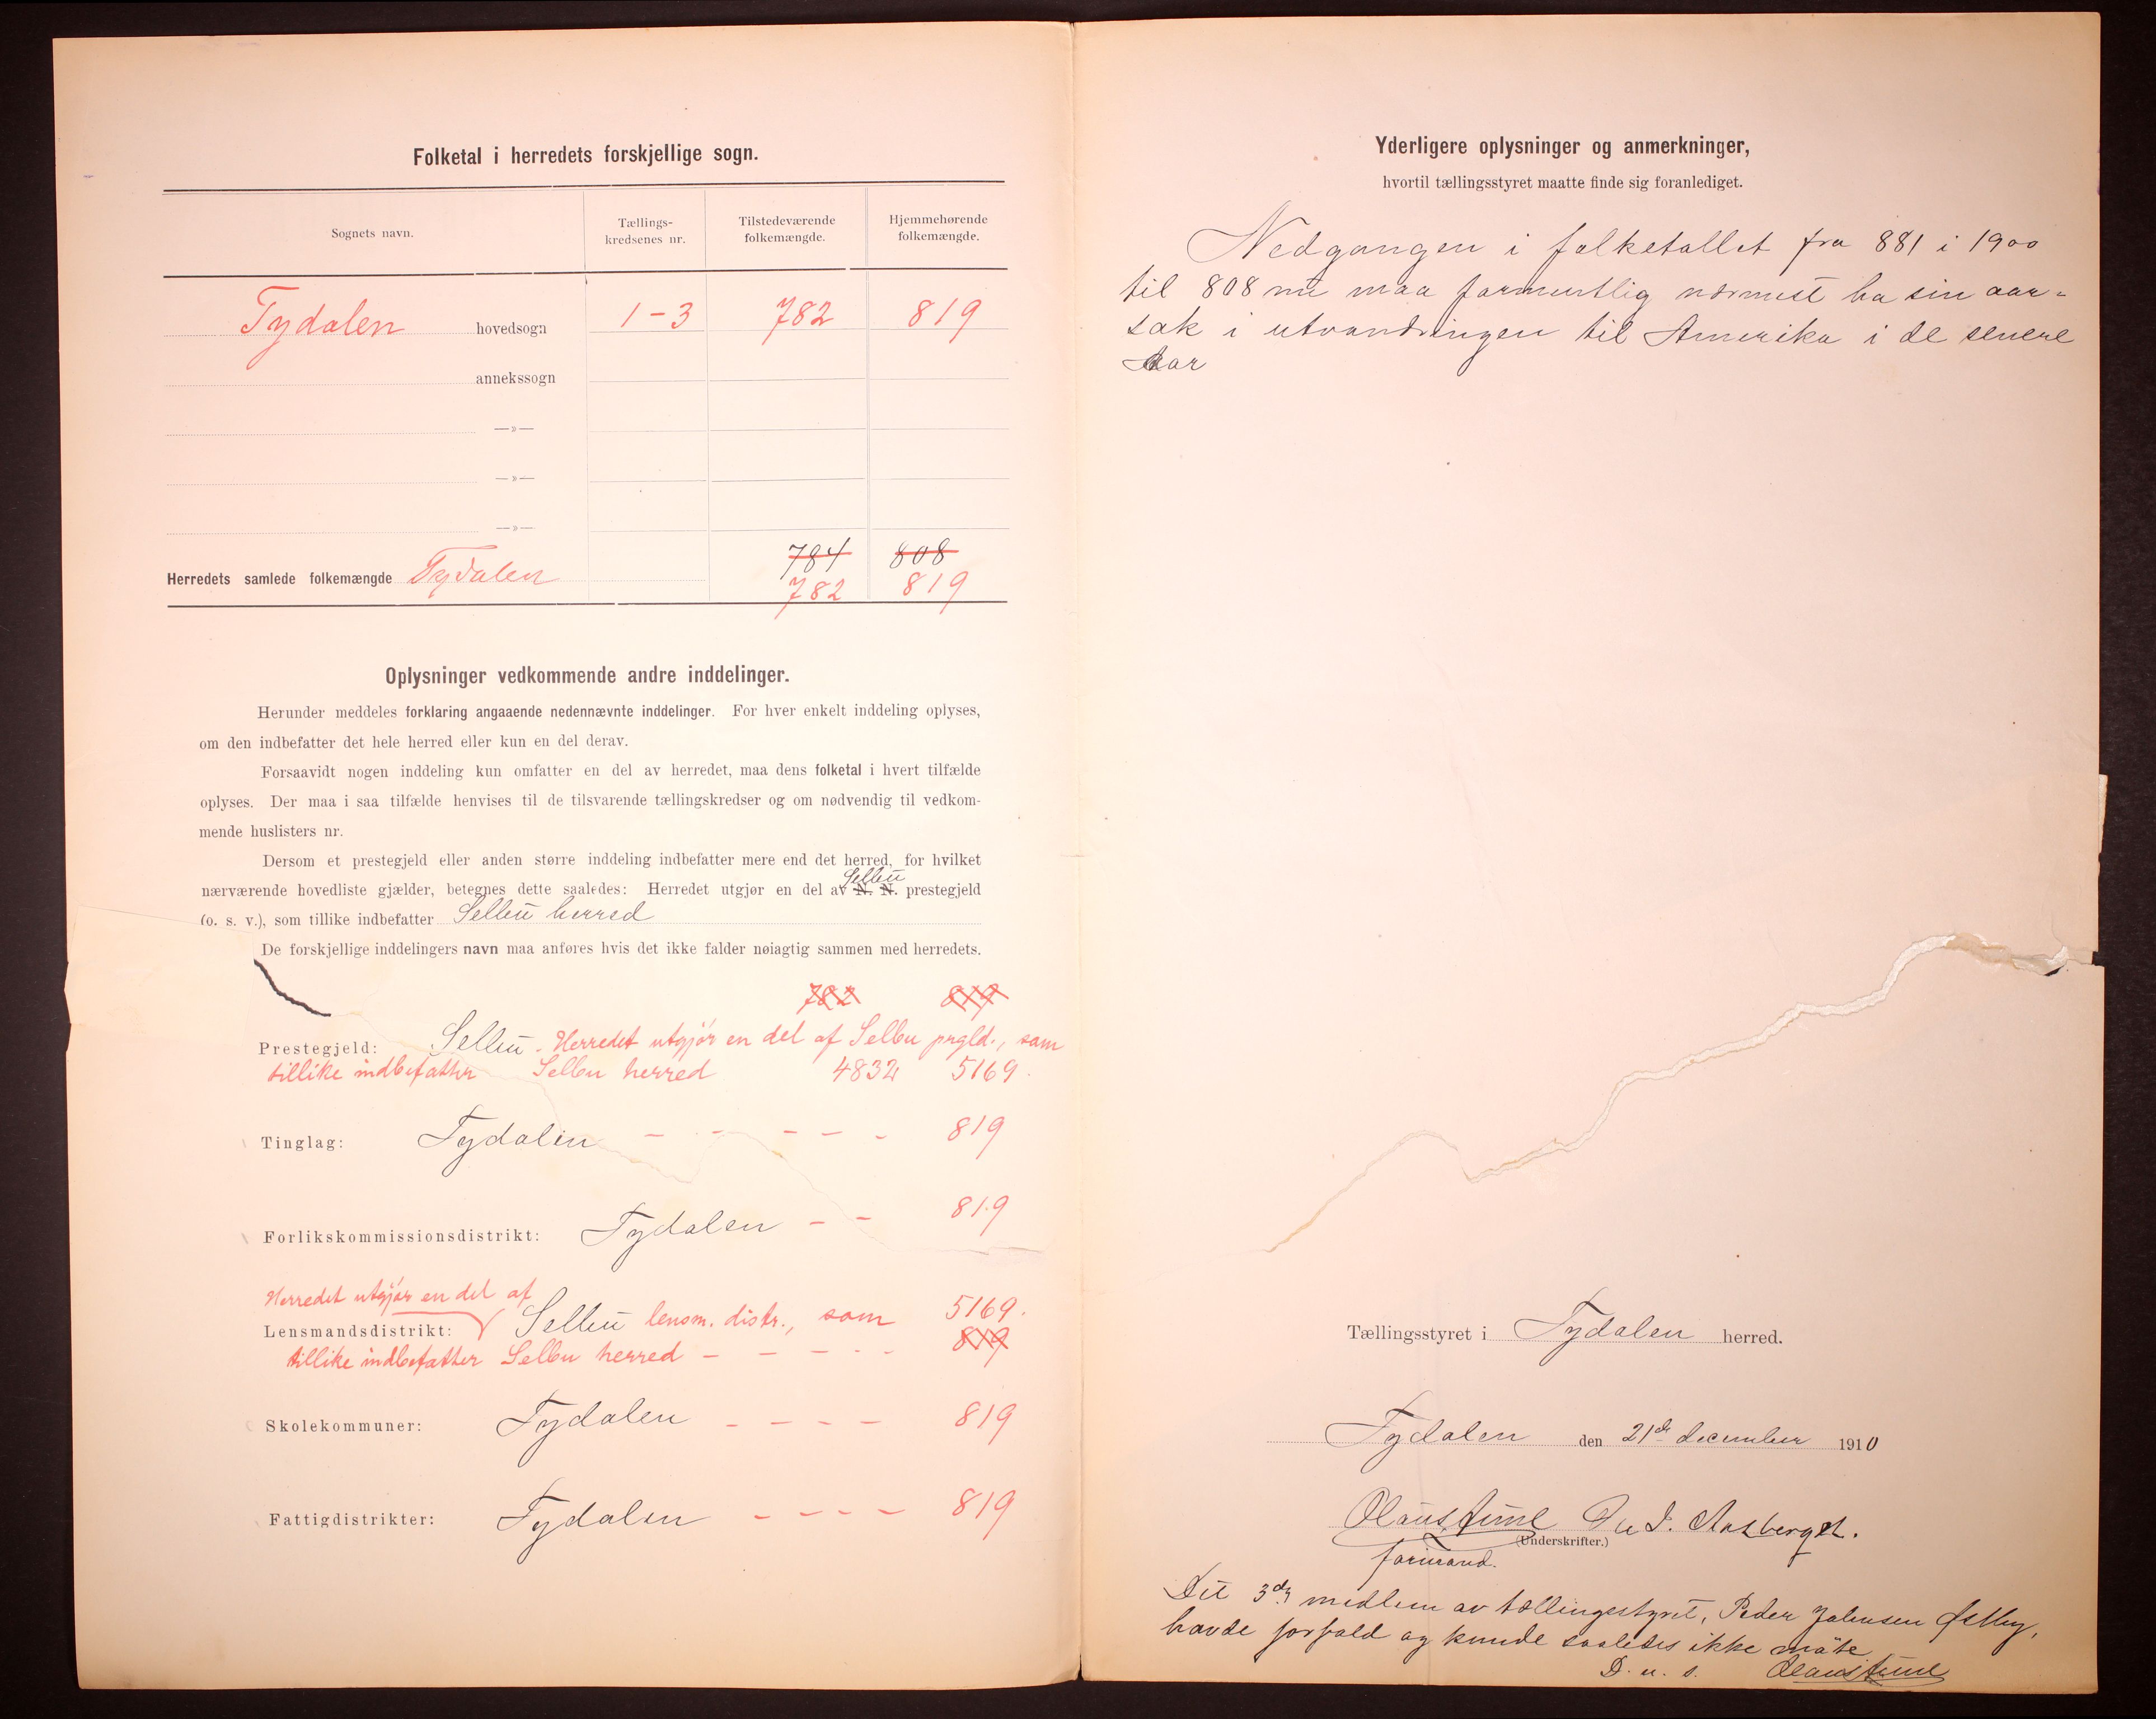 Folketal i herredets forskjellige sogn.
Sognets navn.
Tællings-
kredsenes nr.
Tilstedeværende
folkemængde.
Hjemmehørende
folkemængde.
Tydalen hovedsogn 1-3 782 819
annekssogn
—»—
—»—
—»—
784 808
Herredets samlede folkemængde Tydalen 782 819
Oplysninger vedkommende andre inddelinger.
Herunder meddeles forklaring angaaende nedennævnte inddelinger. For hver enkelt inddeling oplyses,
om den indbefatter det hele herred eller kun en del derav.
Forsaavidt nogen inddeling kun omfatter en del av herredet, maa dens folketal i hvert tilfælde
oplyses. Der maa i saa tilfælde henvises til de tilsvarende tællingskredser og om nødvendig til vedkom-
mende huslisters nr.
Dersom et prestegjeld eller anden større inddeling indbefatter mere end det herred, for hvilket
Selbu
nærværende hovedliste gjælder, betegnes dette saaledes: Herredet utgjør en del av N. N. prestegjeld
(o. s. v.), som tillike indbefatter Selbu herred
De forskjellige inddelingers navn maa anføres hvis det ikke falder nøiagtig sammen med herredets.
782 819
Prestegjeld: Selbu - Herredet utgjør en del af Selbu prgld., som
tillike indbefatter Selbu herred 4832 5169.
Tinglag: Tydalen - - - - - 819
Forlikskommissionsdistrikt: Tydalen - - 819
Herredet utgjør en del af
Lensmandsdistrikt: Selbu lensm. distr., som 5169.
tillike indbefatter Selbu herred - - - - - 819
Skolekommuner: Tydalen - - - - 819
Fattigdistrikter: Tydalen - - - - 819
Yderligere oplysninger og anmerkninger,
hvortil tællingsstyret maatte finde sig foranlediget.
Nedgangen i folketallet fra 881 i 1900
til 808 nu maa formentlig nærmest ha sin aar-
sak i utvandringen til Amerika i de senere
Aar
Tællingsstyret i Tydalen herred.
Tydalen den 21de december 1910
Olaus Aune J. Aasberget.
(Underskrifter.)
formand.
Det 3de medlem av tællingsstyret, Peder Johnsen Østby,
havde forfald og kunde saaledes ikke møte.
D. u. s. Olaus Aune